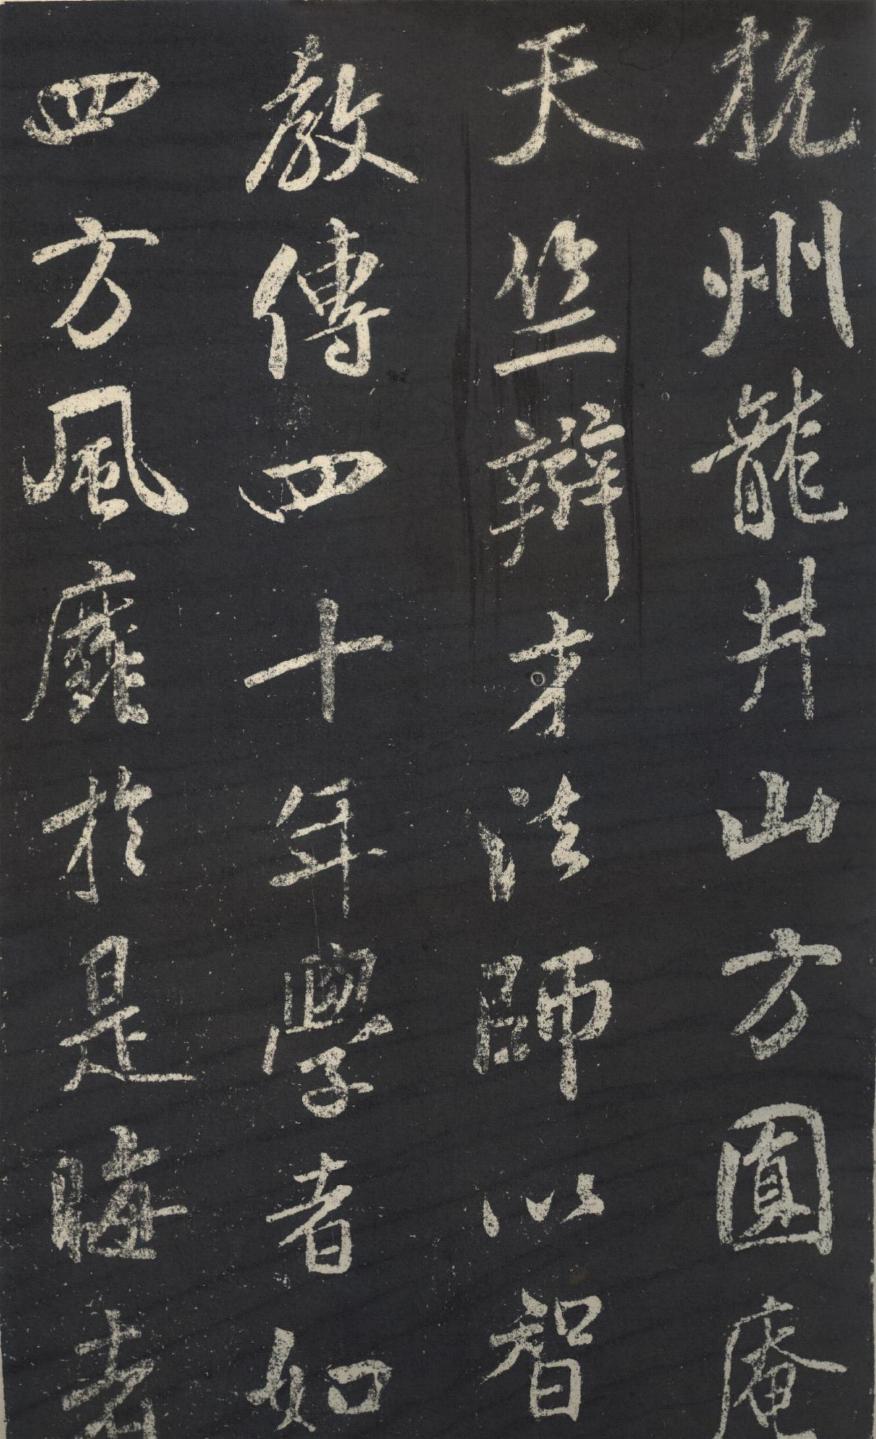 杭州龍井山方圓庵
天竺辯才法師以智
教傳四十年學者如
四方風靡於是晦者